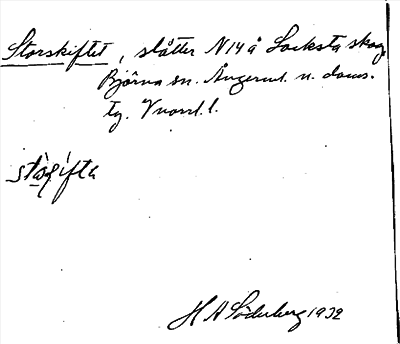 Storskiftet, slåtter N14 å Locksta skog,
Björna sn. Ångerml. n. doms.
tg. Vnorrl. l.
stòṛìfta
H A Söderberg 1932